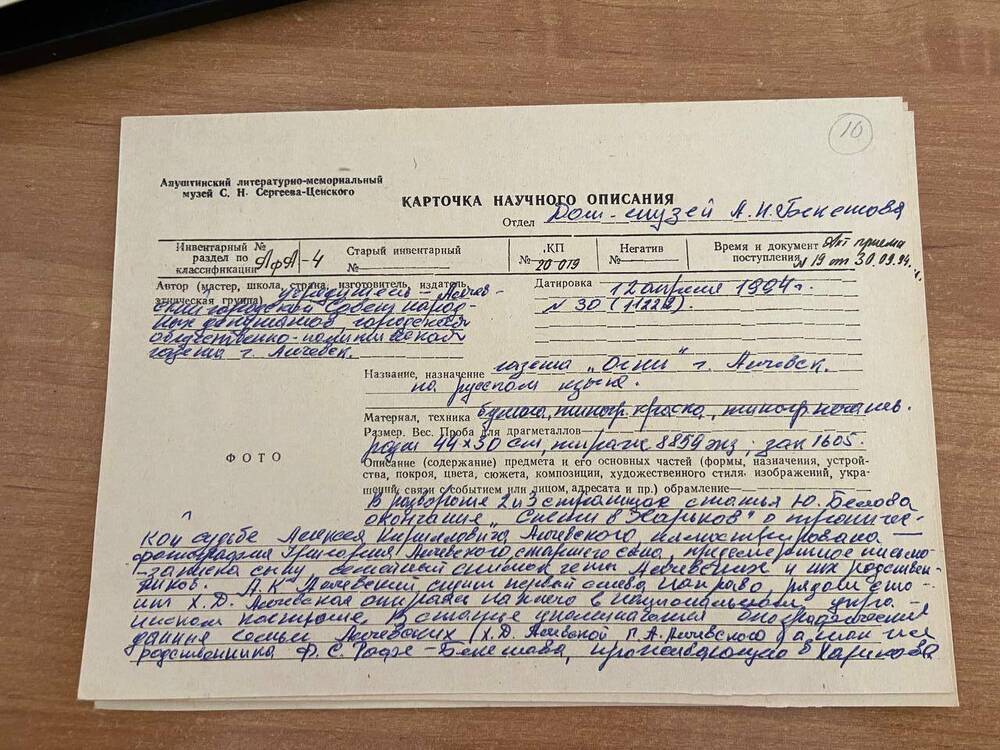 10
Алуштинский литературно-мемориальный
музей С. Н. Сергеева-Ценского
КАРТОЧКА НАУЧНОГО ОПИСАНИЯ
Отдел Дом-музей А.Н. Бекетова
Инвентарный №
раздел по
классификации АфА-4
Старый инвентарный
№
КП
№ 20-079
Негатив
№
Время и документ Акт приема
поступления № 19 от 30.09.94 г.
Автор (мастер, школа, страна, изготовитель, издатель,
этническая группа) Учредители - Алчев-
ский городской Совет народ-
ных депутатов, городская
общественно-политическая
газета г. Алчевск.
Датировка 12 апреля 1994 г.
№ 30 (11229)
Название, назначение газета "Огни" г. Алчевск.
на русском языке.
Материал, техника бумага, типогр. краска, типогр. печать.
Размер. Вес. Проба для драгметаллов
разм 44×30 см, тираж 8859 экз; зак 1605.
ФОТО
Описание (содержание) предмета и его основных частей (формы, назначения, устрой-
ства, покроя, цвета, сюжета, композиции, художественного стиля. изображений, укра-
шений, связи с событием или лицом, адресата и пр.) обрамление
В развороте 2 и 3 страницах статья Ю. Белова
окончания "Спеши в Харьков" о трагичес-
кой судьбе Алексея Кирилловича Алчевского иллюстрирована
фотография Григория Алчевского старшего сына, предсмертное письмо
-записка сыну, семейный снимок четы Алчевских и их родствен-
ников. А.К. Алчевский сидит первый слева направо рядом сто-
ит Х.Д. Алчевская в национальном укра-
инском костюме. В статье упоминаются биографические
данные семьи Алчевских (Х.Д. Алчевской а так же
родственника Ф.С. Рофе-Бекетова, проживающую в Харькове